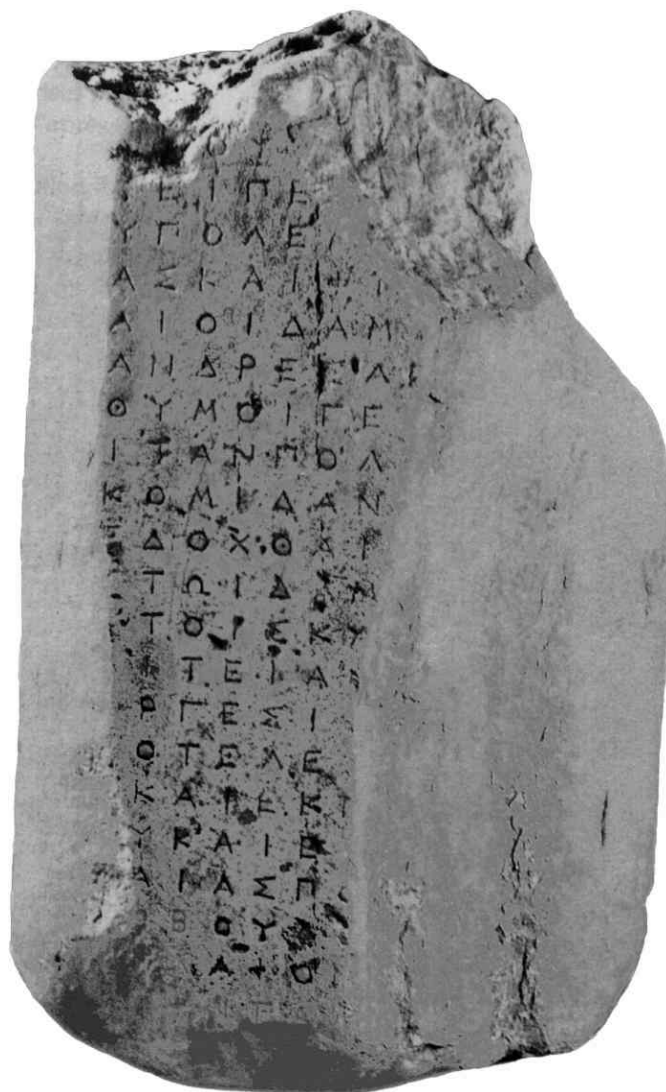 ΟΥ
ΕΙΠΕ
ΥΠΟΛΕ
ΑΣΚΑΙΙ
ΑΙΟΙΔΑΜ
ΑΝΔΡΕΓΑ
ΘΥΜΟΙΓΕ
ΙΤΑΝΠΟΛ
ΚΟΜΙΔΑΝ
ΔΘΧΘΑ
ΤΩΙΔ
ΤΟΙΣΚ
ΤΕΙΑ
ΡΓΕΣΙ
ΟΤΕΛΕ
ΚΑΙΕΚ
ΥΚΑΙΕ
ΑΙΑΣΠ
ΒΟΥ
ΑΤΟ